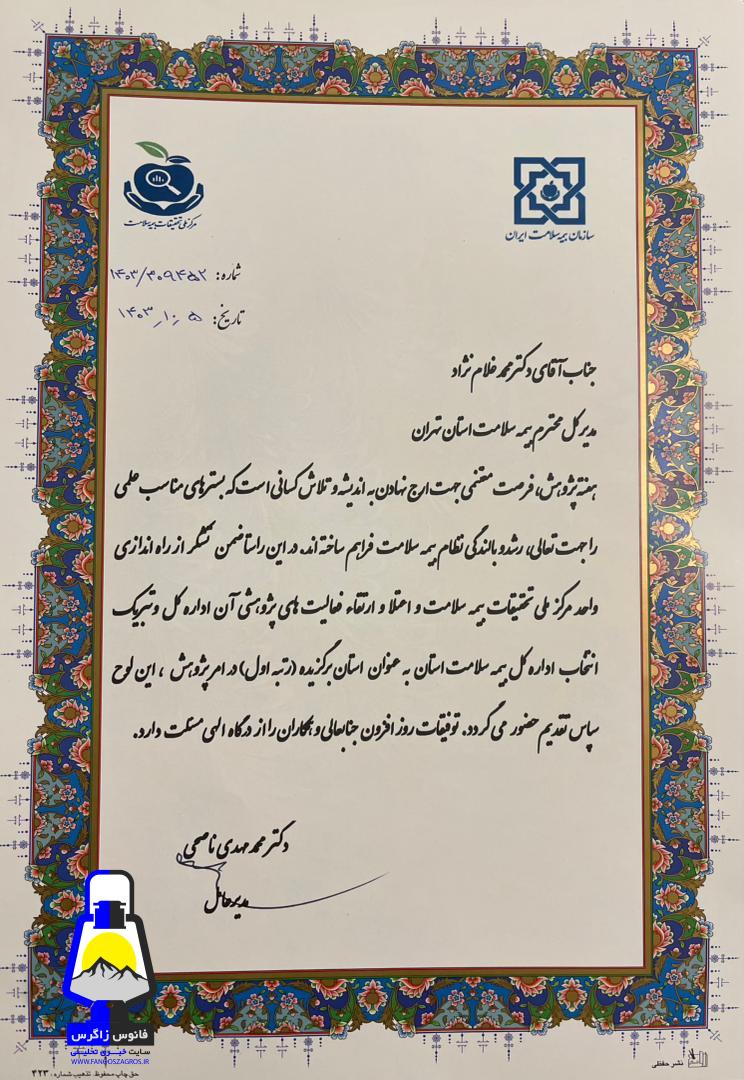 مرکز ملی تحقیقات بیمه سلامت
سازمان بیمه سلامت ایران
شماره: ۱۴۰۳/۳۰۹۴۵۲
تاریخ: ۱۴۰۳_۱۰_۵
جناب آقای دکتر محمد غلام نژاد
مدیر کل محترم بیمه سلامت استان تهران
هفته پژوهش، فرصت مغتنمی جهت ارج نهادن به اندیشه و تلاش کسانی است که بسترهای مناسب علمی
را جهت تعالی، رشد و بالندگی نظام بیمه سلامت فراهم ساخته اند. در این راستا ضمن تشکر از راه اندازی
واحد مرکز ملی تحقیقات بیمه سلامت و اعتلا و ارتقاء فعالیت های پژوهشی آن اداره کل و تبریک
انتخاب اداره کل بیمه سلامت استان به عنوان استان برگزیده (رتبه اول) در امر پژوهش ، این لوح
سپاس تقدیم حضور می گردد. توفیقات روز افزون جنابعالی و همکاران را از درگاه الهی مسئلت دارد.
دکتر محمد مهدی ناصحی
مدیر عامل
فانوس زاگرس
سایت خبری تحلیلی
WWW.FANOOSZAGROS.IR
حق چاپ محفوظ. تذهیب شماره: ۴۲۳
نشر حفظی